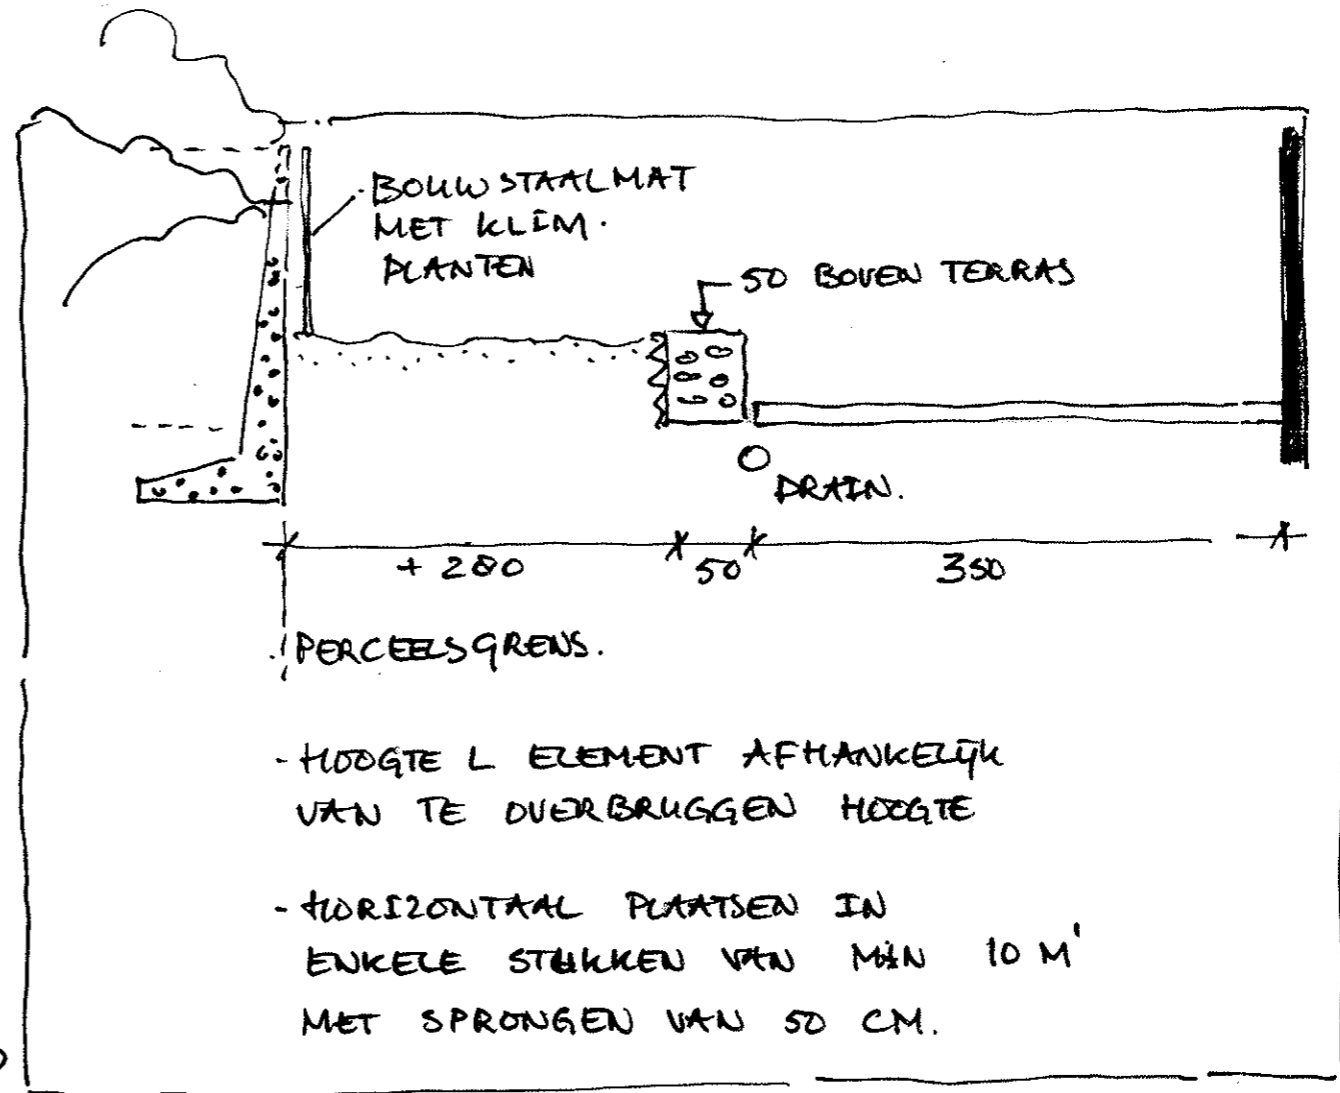 BOUWSTAALMAT
MET KLIM.
PLANTEN
50 BOVEN TERRAS
DRAIN.
+ 280
50
350
PERCEELSGRENS.
- HOOGTE L ELEMENT AFHANKELIJK
VAN TE OVERBRUGGEN HOOGTE
- HORIZONTAAL PLAATSEN IN
ENKELE STUKKEN VAN MIN 10 M'
MET SPRONGEN VAN 50 CM.